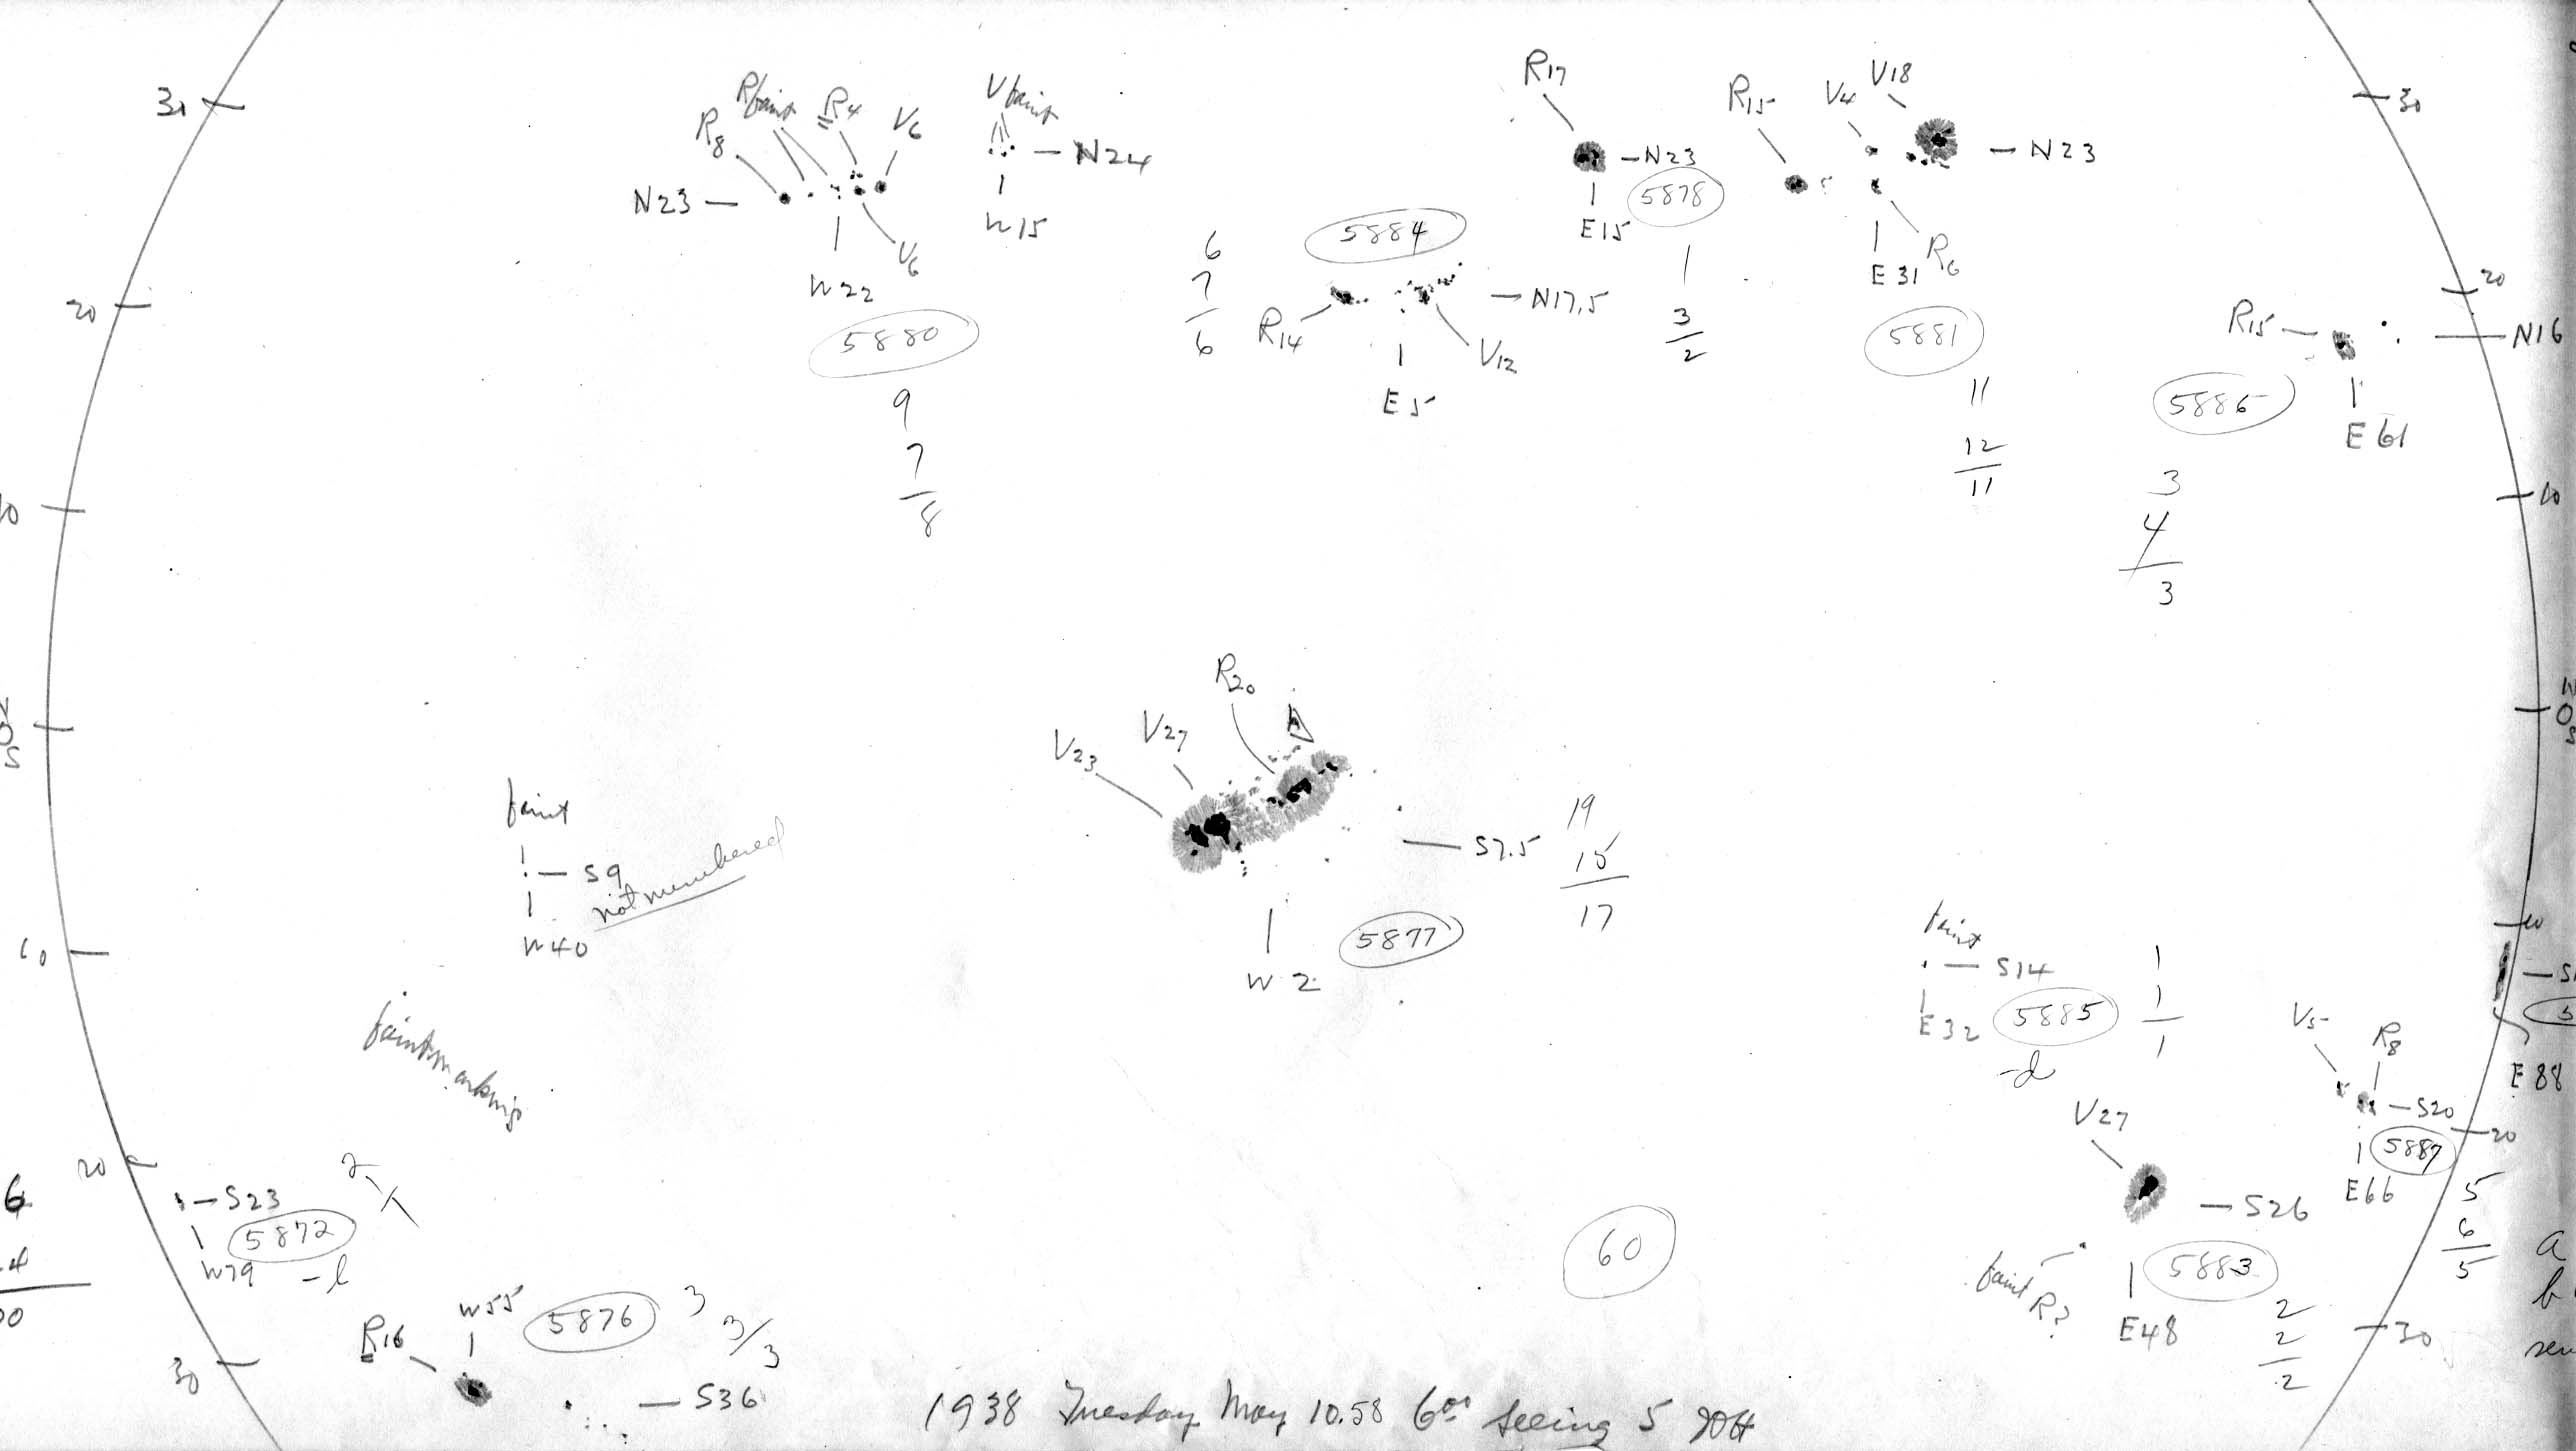 30
R8
Rfaint
R4
V6
N23
V6
W22
5880
9
7
8
Vfaint
N24
W15
6
7
6
5884
R14
N17.5
V12
E5
R17
N23
5878
E15
1
3
2
R15
V4
V18
N23
E31
R6
5881
11
12
11
30
20
R15
N16
5886
E61
3
4
3
20
10
10
0
S
0
faint
S9
not numbered
W40
V23
V27
R20
S7.5
19
15
17
W2
5877
10
10
faint
S14
1
1
1
E32
5885
-d
V5
R8
E88
S20
20
5887
E66
5
6
5
V27
S26
5883
faint R?
E48
2
2
2
30
faint markings
20
S23
5872
W79
-l
2
1
6
4
W55
5876
3
3/3
R16
30
S36
60
a
b
1938 Tuesday May 10.58 6 00 seeing 5